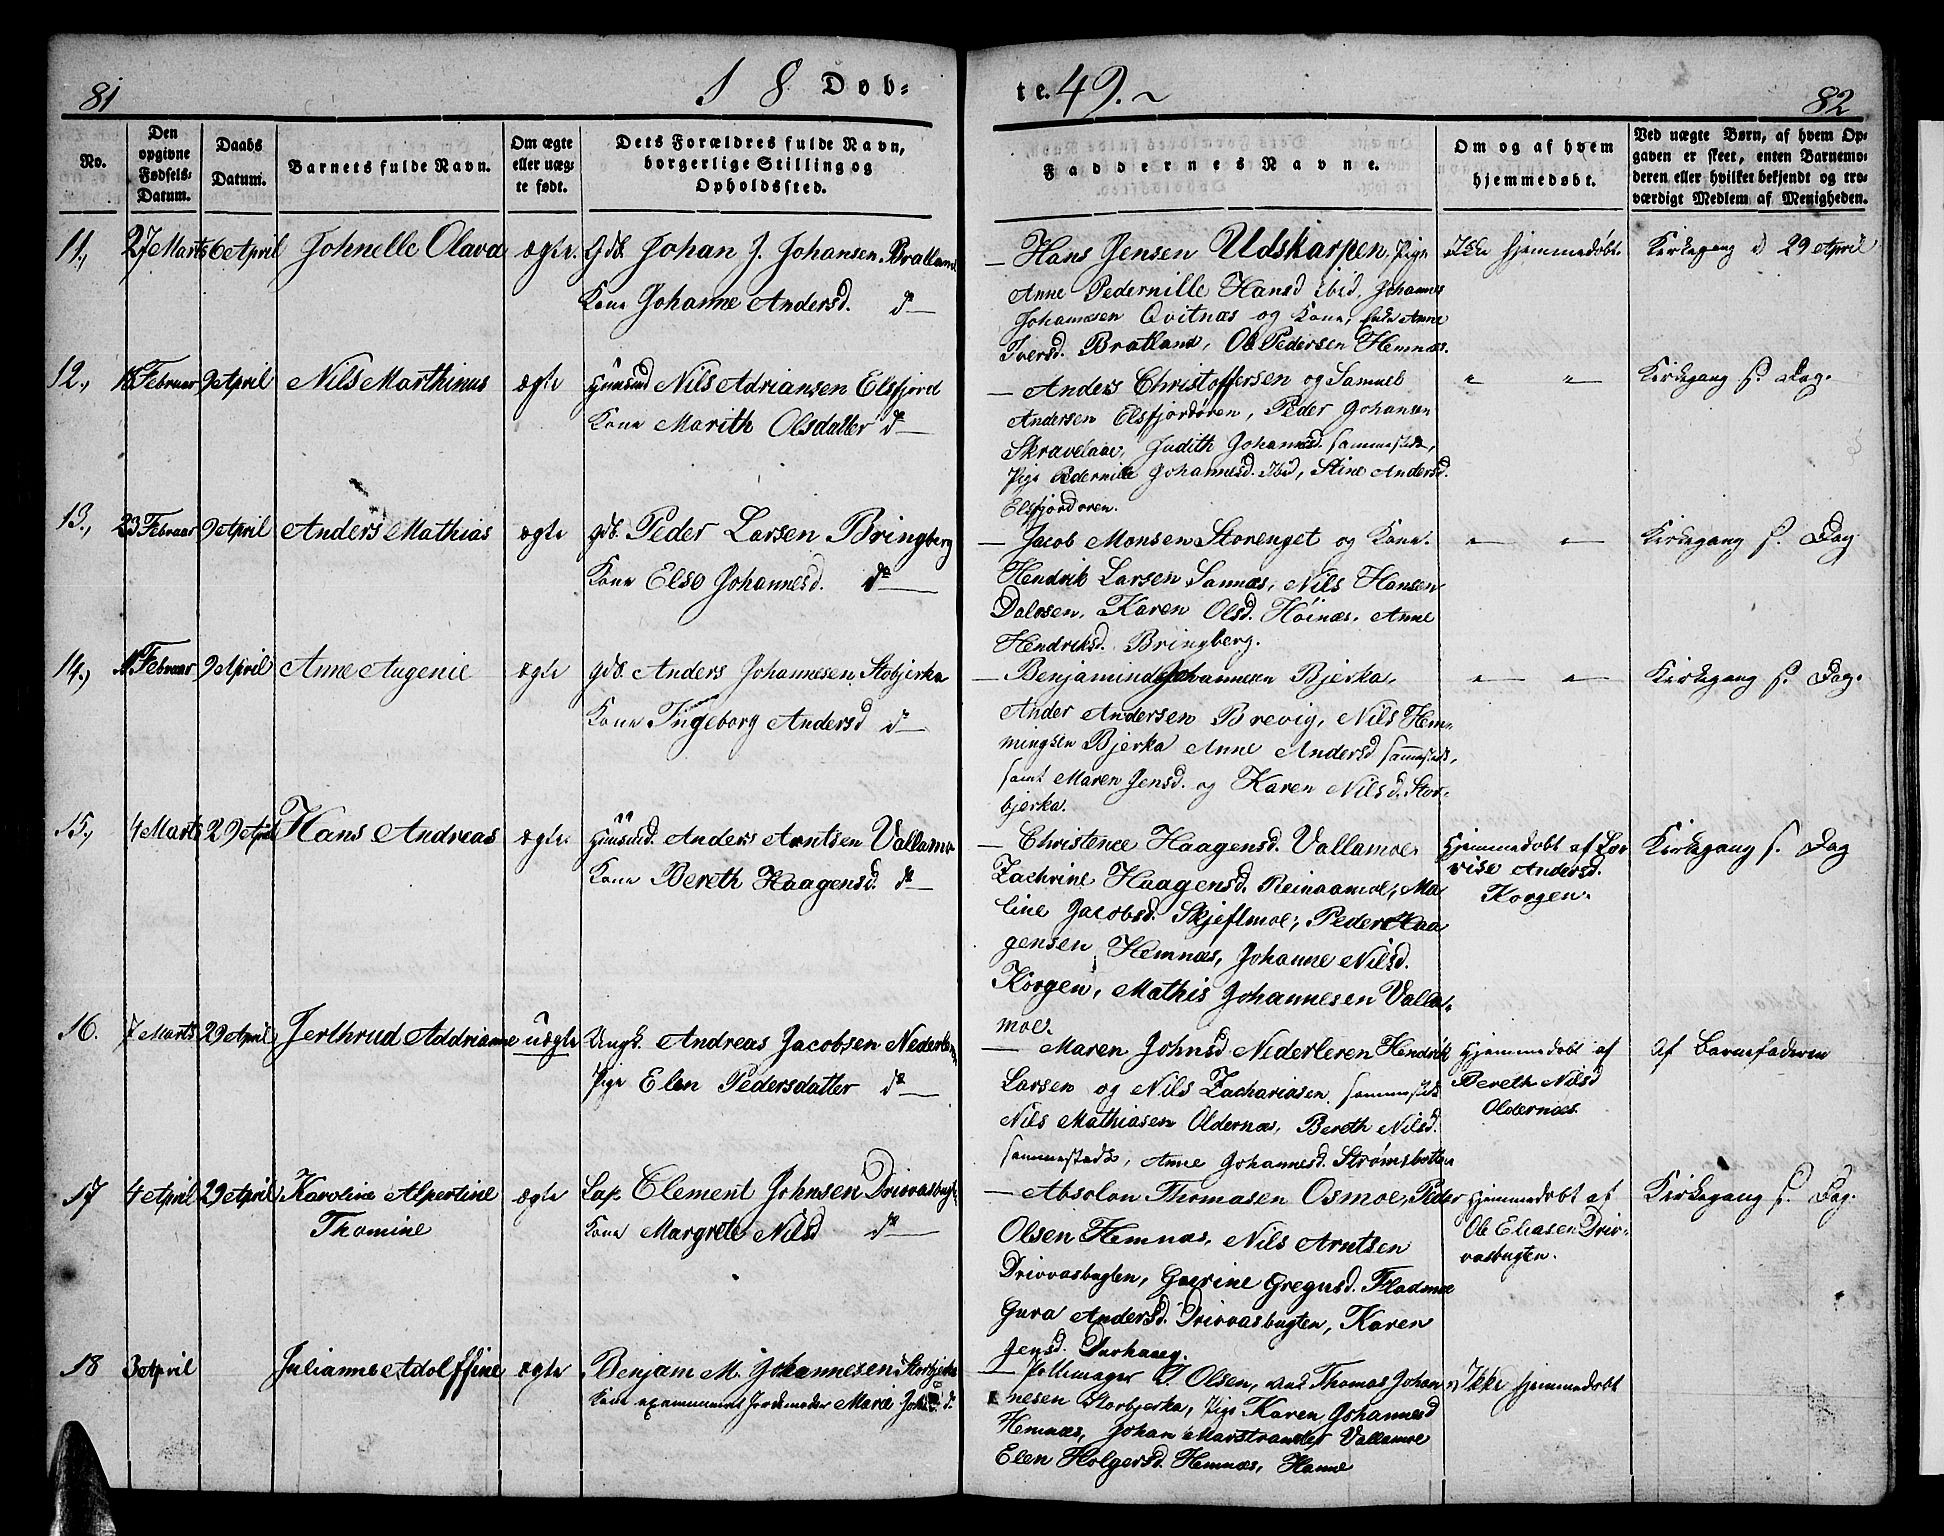 81
1 8 Døb-
te. 49.
82
No.
Den opgivne Fødsels-Datum.
Daabs Datum.
Barnets fulde Navn.
Om ægte eller uæg-te født.
Dets Forældres fulde Navn, borgerlige Stilling og Opholdsted.
Faddernes Navne.
Om og af hvem hjemmedøbt.
Ved uægte Børn, af hvem Op-gaven er skeet, enten Barnemo-deren eller hvilket bekjendt og tro-værdigt Medlem af Menigheden.
11., 27 Marts 6 April Johnelle Olava ægte. Gdb. Johan J. Johansen Bratland
Kone Johanne Andersd. do
— Hans Jensen Udskarpen, Pige
Anne Pedernille Hansd ibid, Johannes
Johannesen Qvitnæs og Kone, Anne
Iversd. Bratland, Ole Pedersen Hemnæs.
Ikke hjemmedøbt.
Kirkegang d 29 April
12., Februar 9 April Nils Marthinus ægte Huusmd Nils Adriansen Elsfjord
Kone Marith Olsdatter do
— Anders Christoffersen og Samuel
Andersen Elsfjordøren, Peder Johansen
Skravelaae, Judith Johannesd. sammesteds,
Pige Pedernille Johannesd. Ibid, Stine Andersd.
Elsfjordøren.
" "
Kirkegang s. Dag.
13., 23 Februar 9 April Anders Mathias ægte Gdb. Peder Larsen Bringberg
Kone Else Johannesd. do
— Jacob Monsen Storenget og Kone.
Hendrik Larsen Sannæs, Nils Hansen
Dalosen, Karen Olsd. Høinæs, Anne
Hendriksd. Bringberg.
" "
Kirkegang s. Dag
14., Februar 9 April Anne Augenie ægte Gdb. Anders Johannesen Stobjerka
Kone Ingeborg Andersd do
— Benjamin Johannesen Bjerka,
Ander Andersen Brevig, Nils Hem-
mingsen Bjerka Anne Andersd sammesteds,
samt Maren Jensd. og Karen Nilsd. Stor-
bjerka.
" "
Kirkegang s. Dag.
15., 4 Marts 29 April Hans Andreas ægte. Huusmd. Anders Arntsen Vallamo
Kone Bereth Haagensd. do
— Christence Haagensd. Vallamoe.
Zachrine Haagensd. Reinaamoe, Ma-
line Jacobsd. Skjeflmoe, Peder Haa
gensen Hemnæs, Johanne Nilsd.
Korgen, Mathis Johannesen Valla-
moe.
Hjemmedøbt af Lo-
vise Andersd.
Korgen.
Kirkegang s. Dag
16. 7 Marts 29 April Jerthrud Addrianne uægte Ungk. Andreas Jacobsen Nederleren
Pige Elen Pedersdatter do
— Maren Johnsd Nederleren Hendrik
Larsen og Nils Zachariasen sammesteds
Nils Mathiasen Oldernæs, Bereth Nilsd.
sammesteds, Anne Johannesd. Strømsbotten
Hjemmedøbt af
Bereth Nilsd
Oldernæs.
Af Barnefaderen
17 4 April 29 April Karoline Alpertine ægte Lap. Clement Johnsen Drivvasbugt
Thomine Kone Margrete Nilsd do
— Absolon Thomasen Osmoe, Peder
Olsen Hemnæs, Nils Arntsen
Drivvasbugten, Gregusd. Fladmoe
Gura Andersd. Drivvasbugten, Karen
Jensd. Durhaug.
Hjemmedøbt af
Ole Eliasen Driv-
vasbugten.
Kirkegang s. Dag.
18 3 April Julianne Adolffine ægte Benjam M. Johannesen Storbjerka
Kone examineret Jordemoder Marie do
— Pottemager Olsen, Thomas Johan
nesen Storbjerka, Pige Karen Johannesd
Hemnæs, Johan Marstrander Vallamoe
Elen Holgersd. Hemnæs, Hanne
Ikke hjemmedøbt